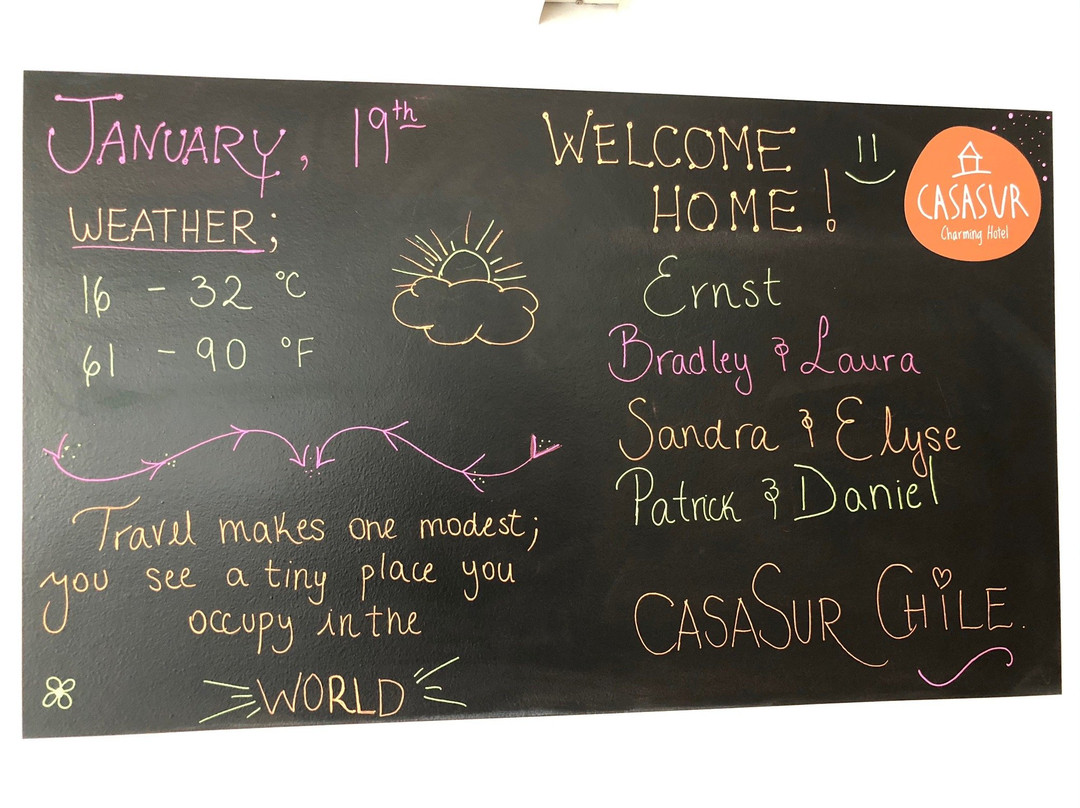 JANUARY, 19th
WEATHER;
16 - 32 °C
61 - 90 °F
Travel makes one modest;
you see a tiny place you
occupy in the
WORLD
WELCOME
HOME!
Ernst
Bradley & Laura
Sandra & Elyse
Patrick & Daniel
CASASUR CHiLE.
CASASUR
Charming Hotel